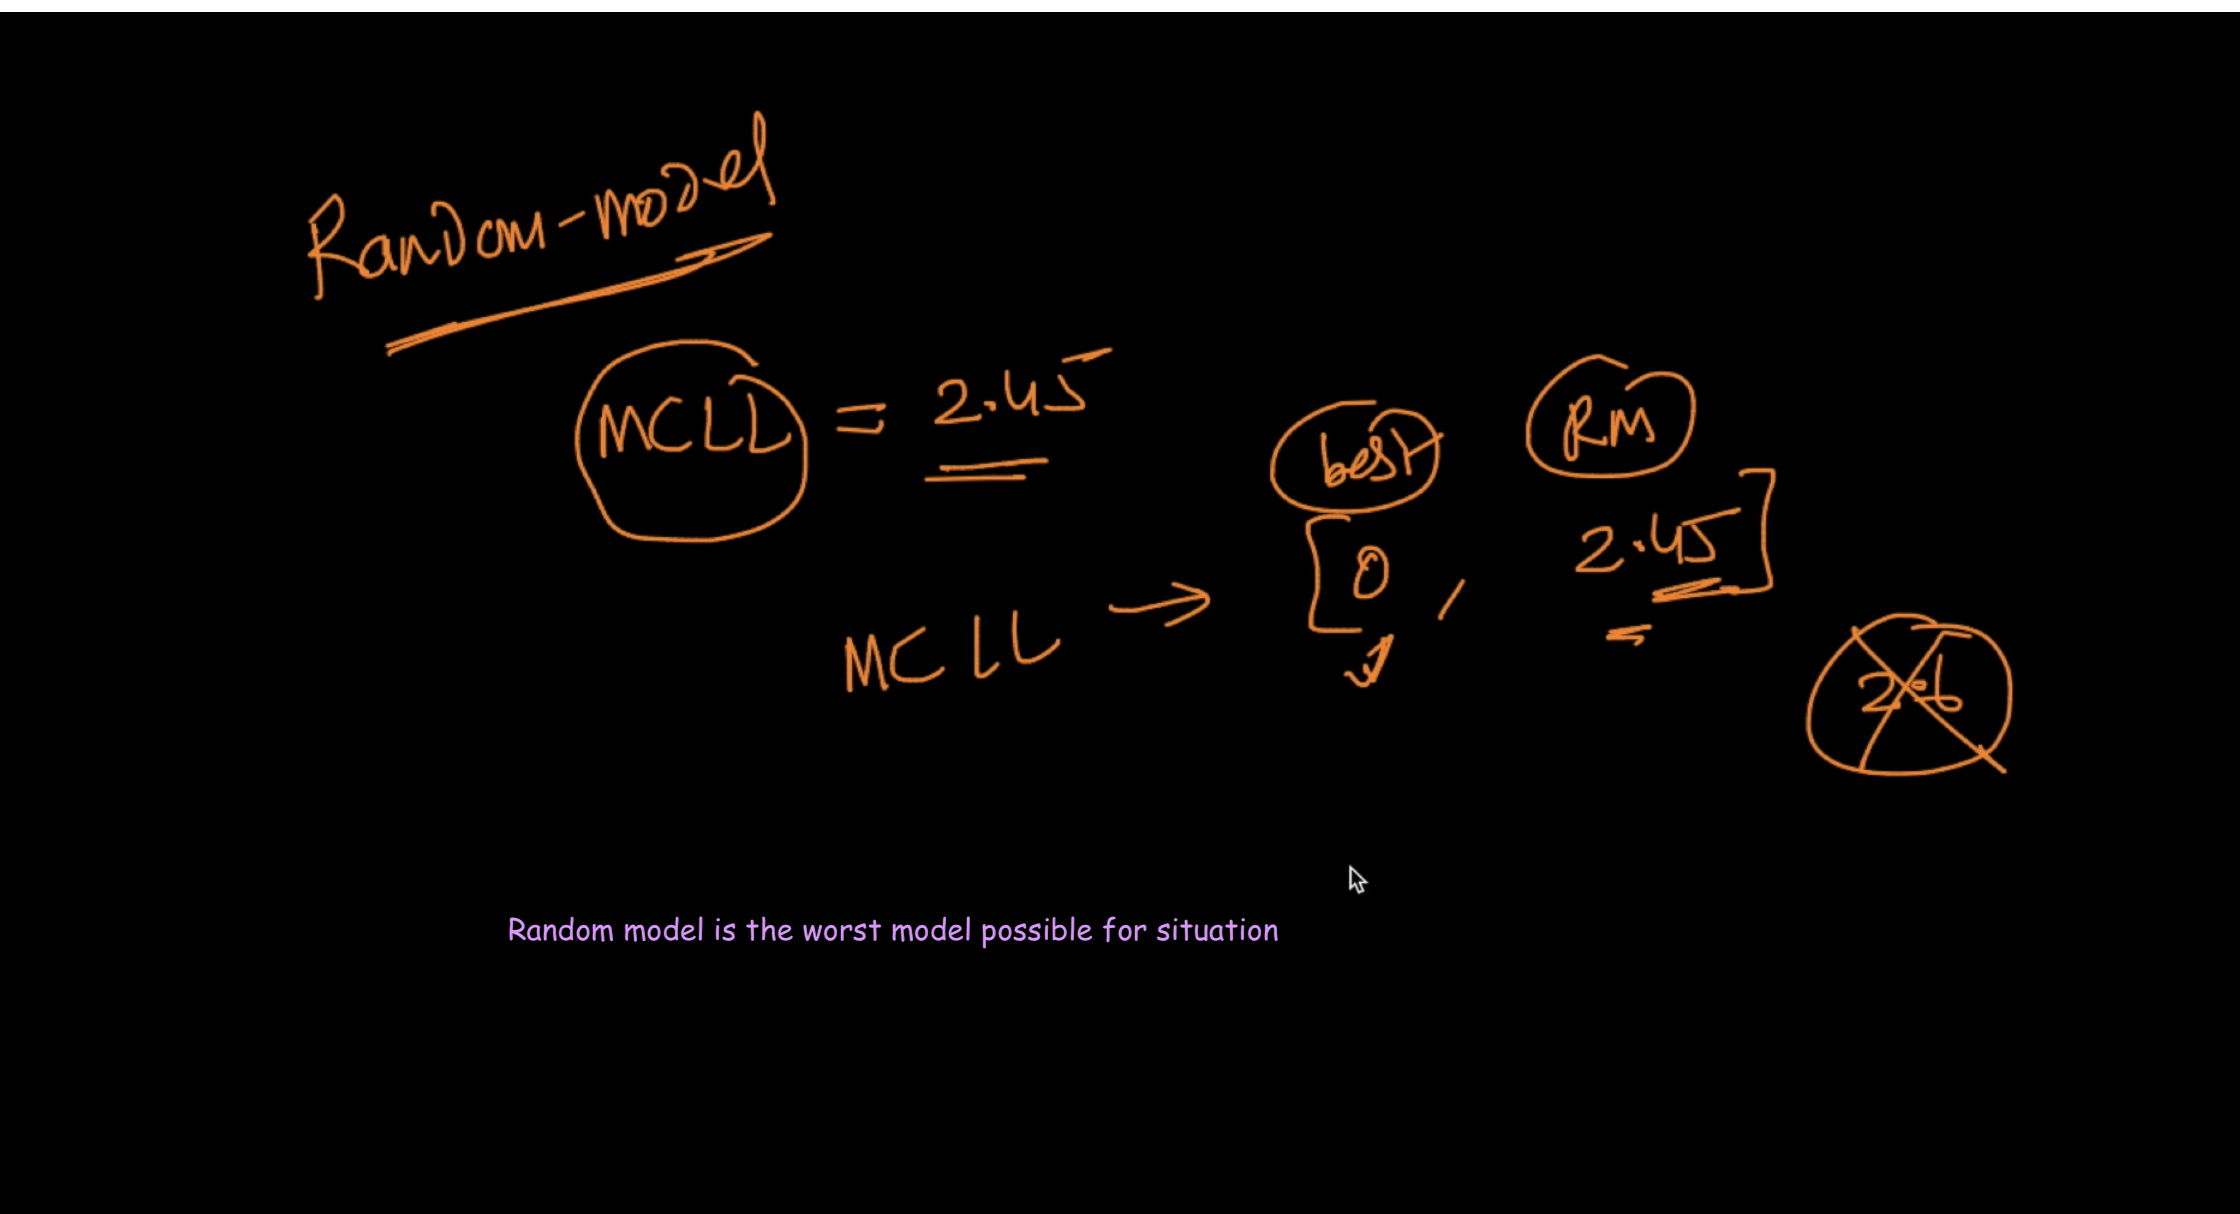 Random-model
MCLL = 2.45
best RM
MCLL → [0, 2.45]
2.6
Random model is the worst model possible for situation